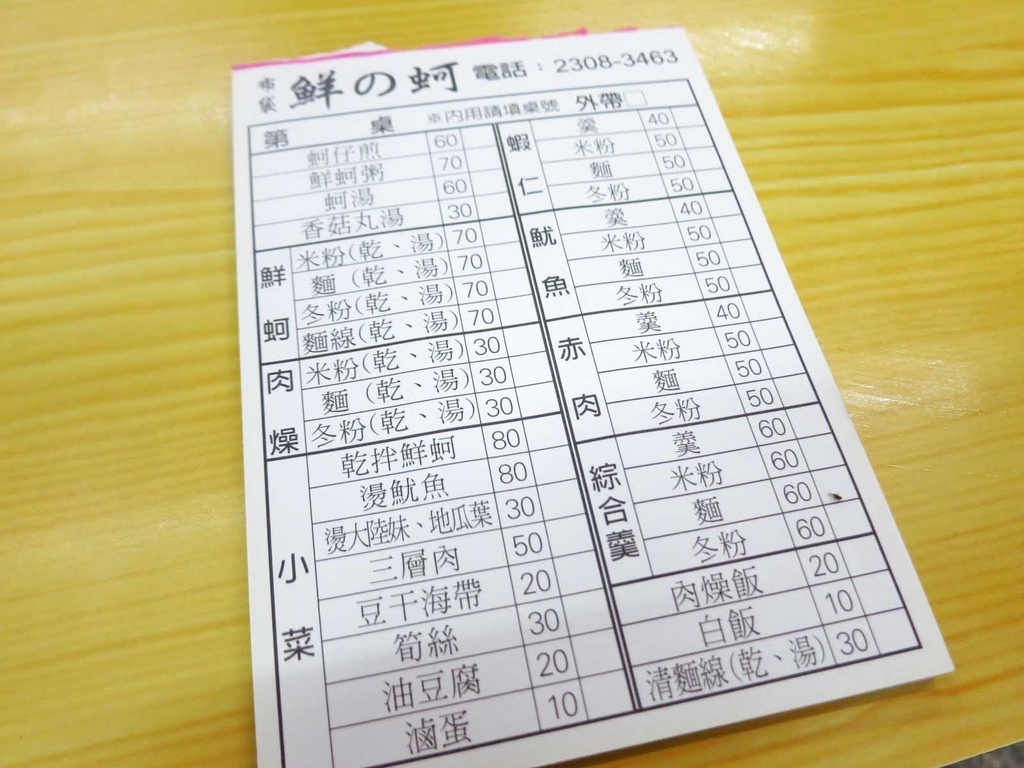 布袋 鮮の蚵 電話：2308-3463
第 桌 ※內用請填桌號 外帶□
蚵仔煎 60
鮮蚵粥 70
蚵湯 60
香菇丸湯 30
鮮蚵
米粉(乾、湯) 70
麵 (乾、湯) 70
冬粉(乾、湯) 70
麵線(乾、湯) 70
肉燥
米粉(乾、湯) 30
麵 (乾、湯) 30
冬粉(乾、湯) 30
小菜
乾拌鮮蚵 80
燙魷魚 80
燙大陸妹、地瓜葉 30
三層肉 50
豆干海帶 20
筍絲 30
油豆腐 20
滷蛋 10
蝦仁
羹 40
米粉 50
麵 50
冬粉 50
魷魚
羹 40
米粉 50
麵 50
冬粉 50
赤肉
羹 40
米粉 50
麵 50
冬粉 50
綜合羹
羹 60
米粉 60
麵 60
冬粉 60
肉燥飯 20
白飯 10
清麵線(乾、湯) 30